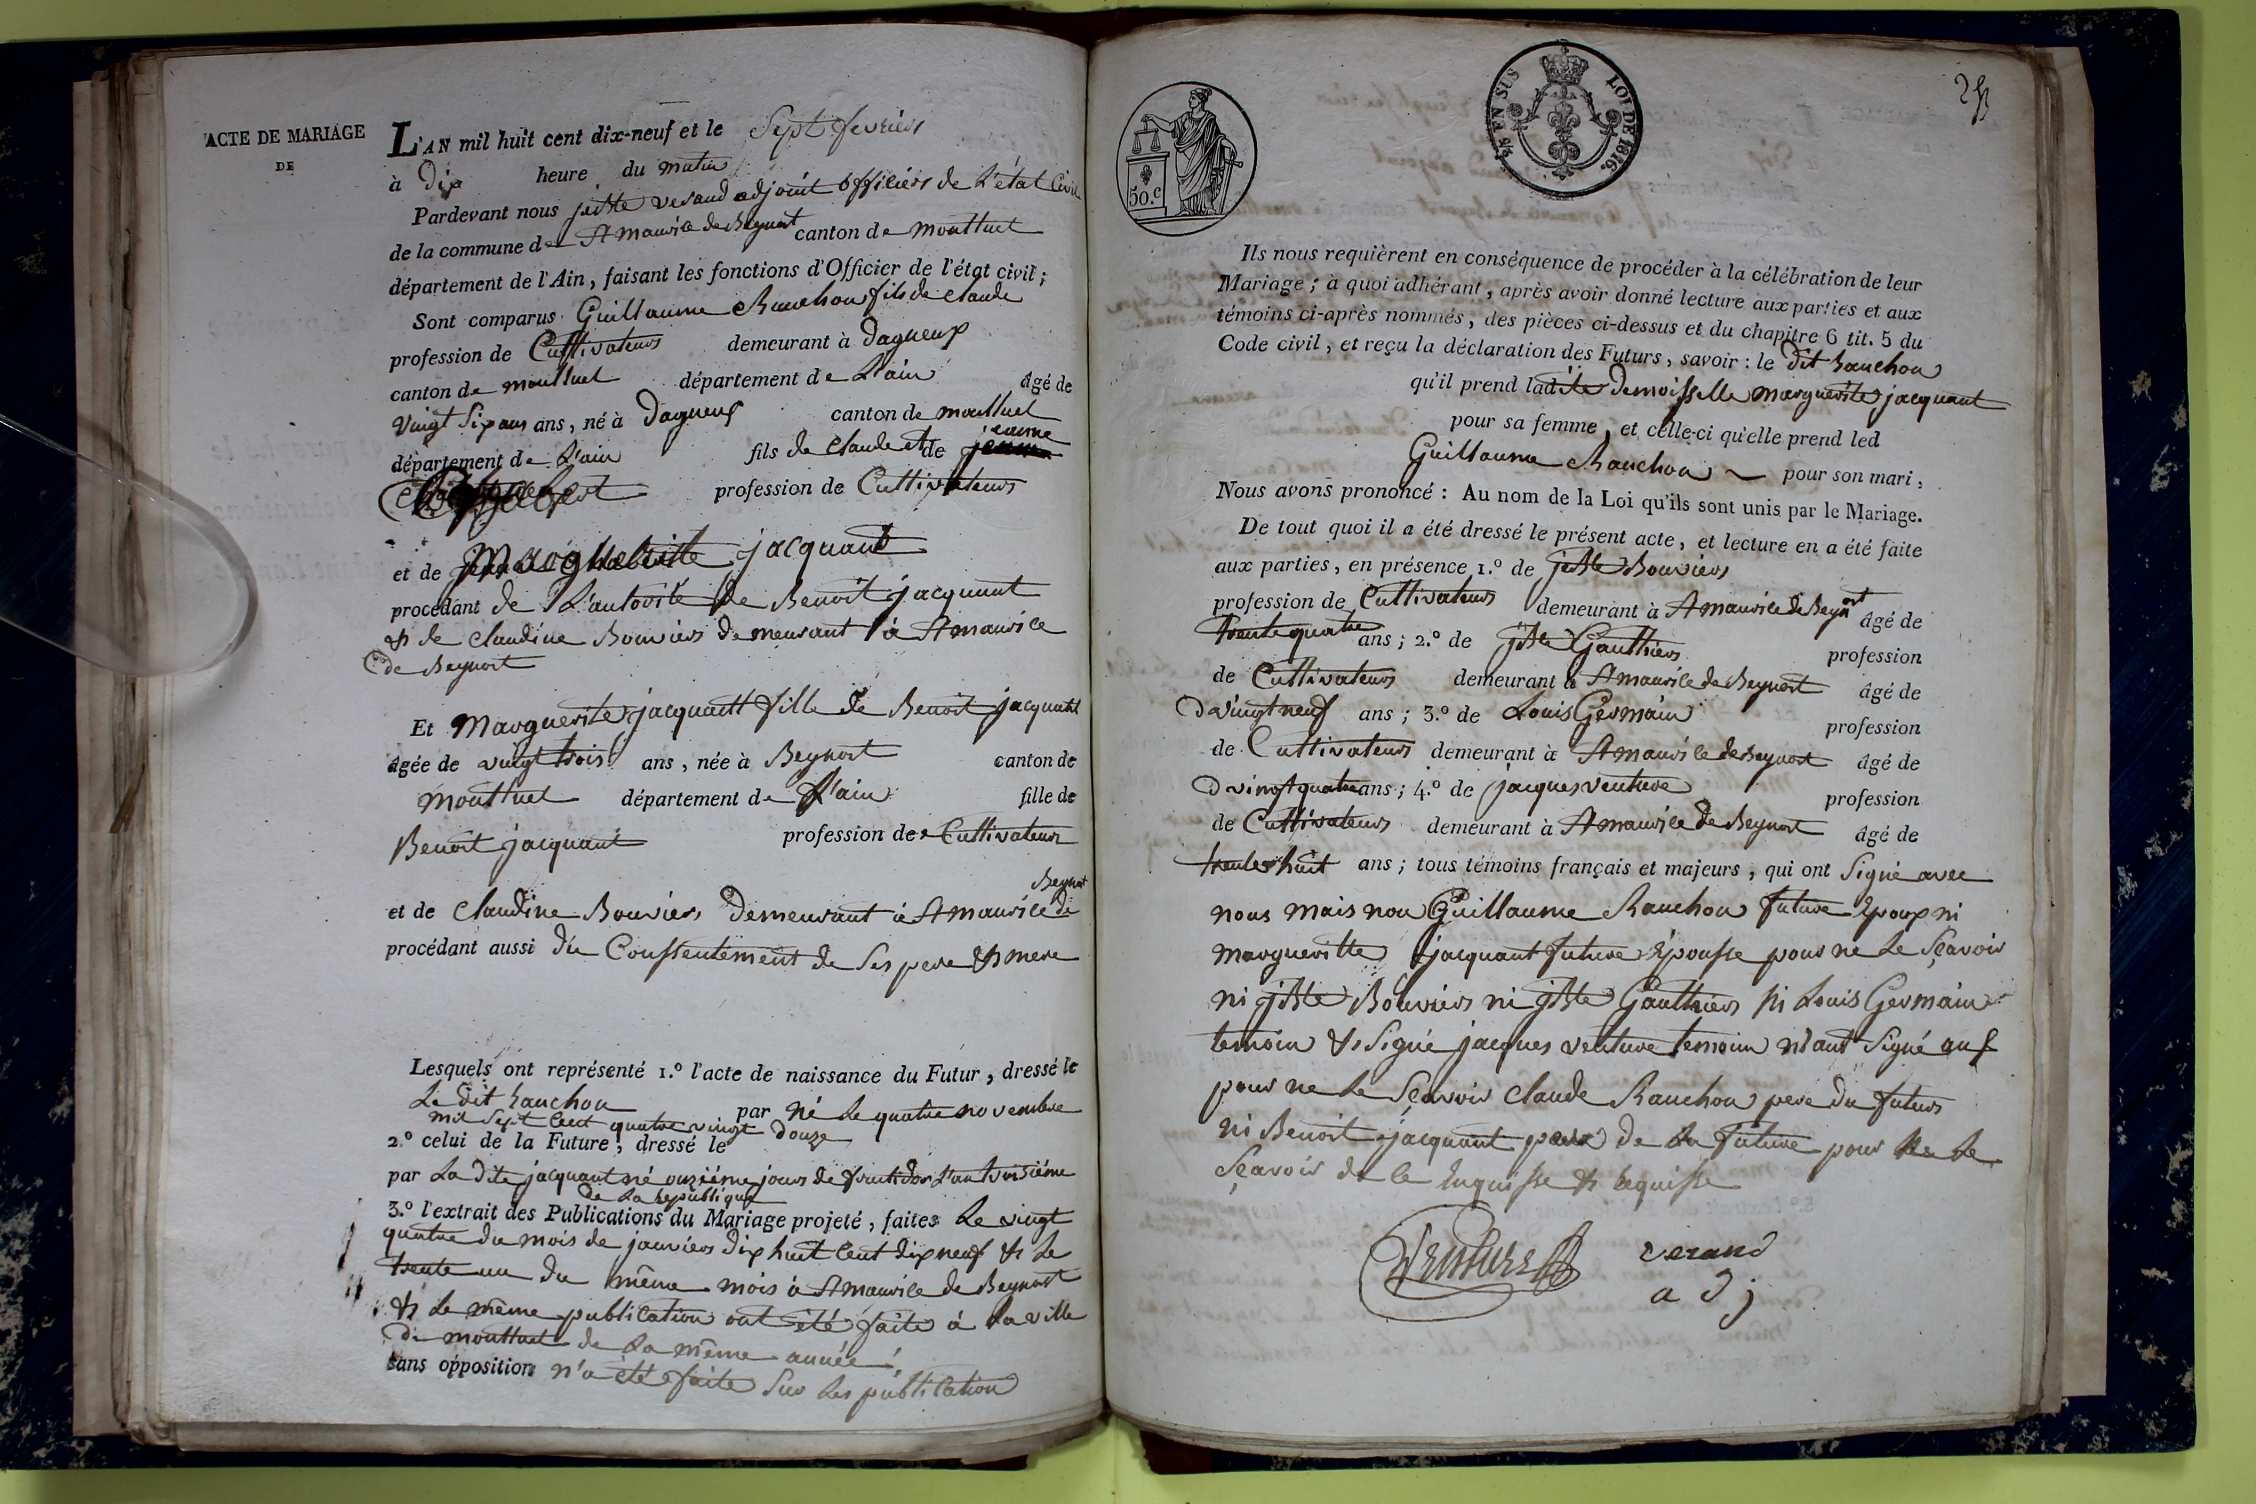 ACTE DE MARIAGE
DE
L'AN mil huit cent dix-neuf et le Sept fevriers
à Dix heure du matin
Pardevant nous jBte verand adjoint officiers de L'état Civil
de la commune de St maurice de Beynost canton de montluel
département de l'Ain, faisant les fonctions d'Officier de l'état civil;
Sont comparus Guillaume Rauchon fils de claude
profession de Cultivateurs demeurant à Dagneux
canton de montluel département de L'ain âgé de
vingt Six ans ans, né à Dagneux canton de montluel
département de L'ain fils de claude et de jeanne
profession de Cultivateurs
et de Margueritte jacquant
procédant de L'autorité de Benoit jacquant
& de claudine Bouviers demeurant à St maurice
de Beynost
Et Marguerite jacquant fille de Benoit jacquant
âgée de vingt trois ans, née à Beynost canton de
montluel département de L'ain fille de
Benoit jacquant profession de Cultivateur
Beynost
et de claudine Bouviers Demeurant à St maurice de
procédant aussi du Conssentement de Ses pere & mere
Lesquels ont représenté 1.º l'acte de naissance du Futur, dressé le
Le dit Rauchon par né Le quatre novembre
mil Sept Cent quatre vingt Douze
2.º celui de la Future, dressé le
par La Dite jacquant né onziéme jours de fructidor L'an troisiéme
de La republique
3.º l'extrait des Publications du Mariage projeté, faites Le vingt
quatre du mois de janviers Dix huit Cent Dix neuf & Le
trente un du même mois à St maurice de Beynost
& Le même publication ont été faite à La ville
De montluel de La même année
sans opposition n'a été faite Sur Les publication
50.c
¼ EN SUS
LOI DE 1816.
Ils nous requièrent en conséquence de procéder à la célébration de leur
Mariage; à quoi adhérant, après avoir donné lecture aux parties et aux
témoins ci-après nommés, des pièces ci-dessus et du chapitre 6 tit. 5 du
Code civil, et reçu la déclaration des Futurs, savoir: le dit Rauchon
qu'il prend ladite Demoisselle marguerite jacquant
pour sa femme, et celle-ci qu'elle prend led
Guillaume Rauchon pour son mari,
Nous avons prononcé: Au nom de la Loi qu'ils sont unis par le Mariage.
De tout quoi il a été dressé le présent acte, et lecture en a été faite
aux parties, en présence 1.º de jBte Bouviers
profession de Cultivateurs demeurant à St maurice de Beynost âgé de
trente quatre ans; 2.º de jBte Gauthiers profession
de Cultivateurs demeurant à St maurice de Beynost âgé de
Dvingt neuf ans; 3.º de Louis Germain profession
de Cultivateurs demeurant à St maurice de Beynost âgé de
Dvingt quatre ans; 4.º de jacques venture profession
de Cultivateurs demeurant à St maurice de Beynost âgé de
trente huit ans; tous témoins français et majeurs, qui ont Signé avec
nous mais non Guillaume Rauchon future Epoux ni
margueritte jacquant future Epousse pour ne Le Sçavoir
ni jBte Bouviers ni jBte Gauthiers ni Louis Germain
temoin & Signé jacques venture temoin n'iant Signé
pour ne Le Sçavoir claude Rauchon pere du futurs
ni Benoit jacquant pere de La future pour Ne Le
Sçavoir de ce Enquisse & Requisse
Venture verand
adj